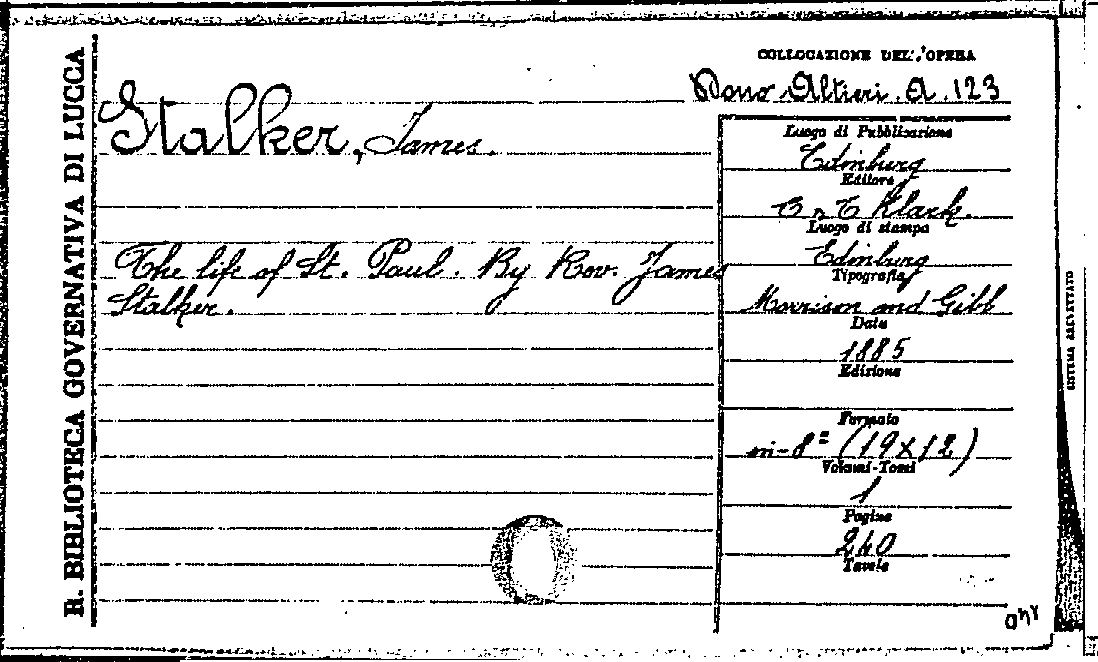 R. BIBLIOTECA GOVERNATIVA DI LUCCA
COLLOCAZIONE DELL'OPERA
Dono Altieri. A. 123
Stalker, James.
The life of St. Paul. By Rev. James
Stalker.
Luogo di Pubblicazione
Edinburg
Editore
Klark.
Luogo di stampa
Edinburg
Tipografia
Morrison and Gibb
Data
1885
Edizione
Formato
in-8º (19x12)
Volumi-Tomi
1
Pagine
240
Tavole